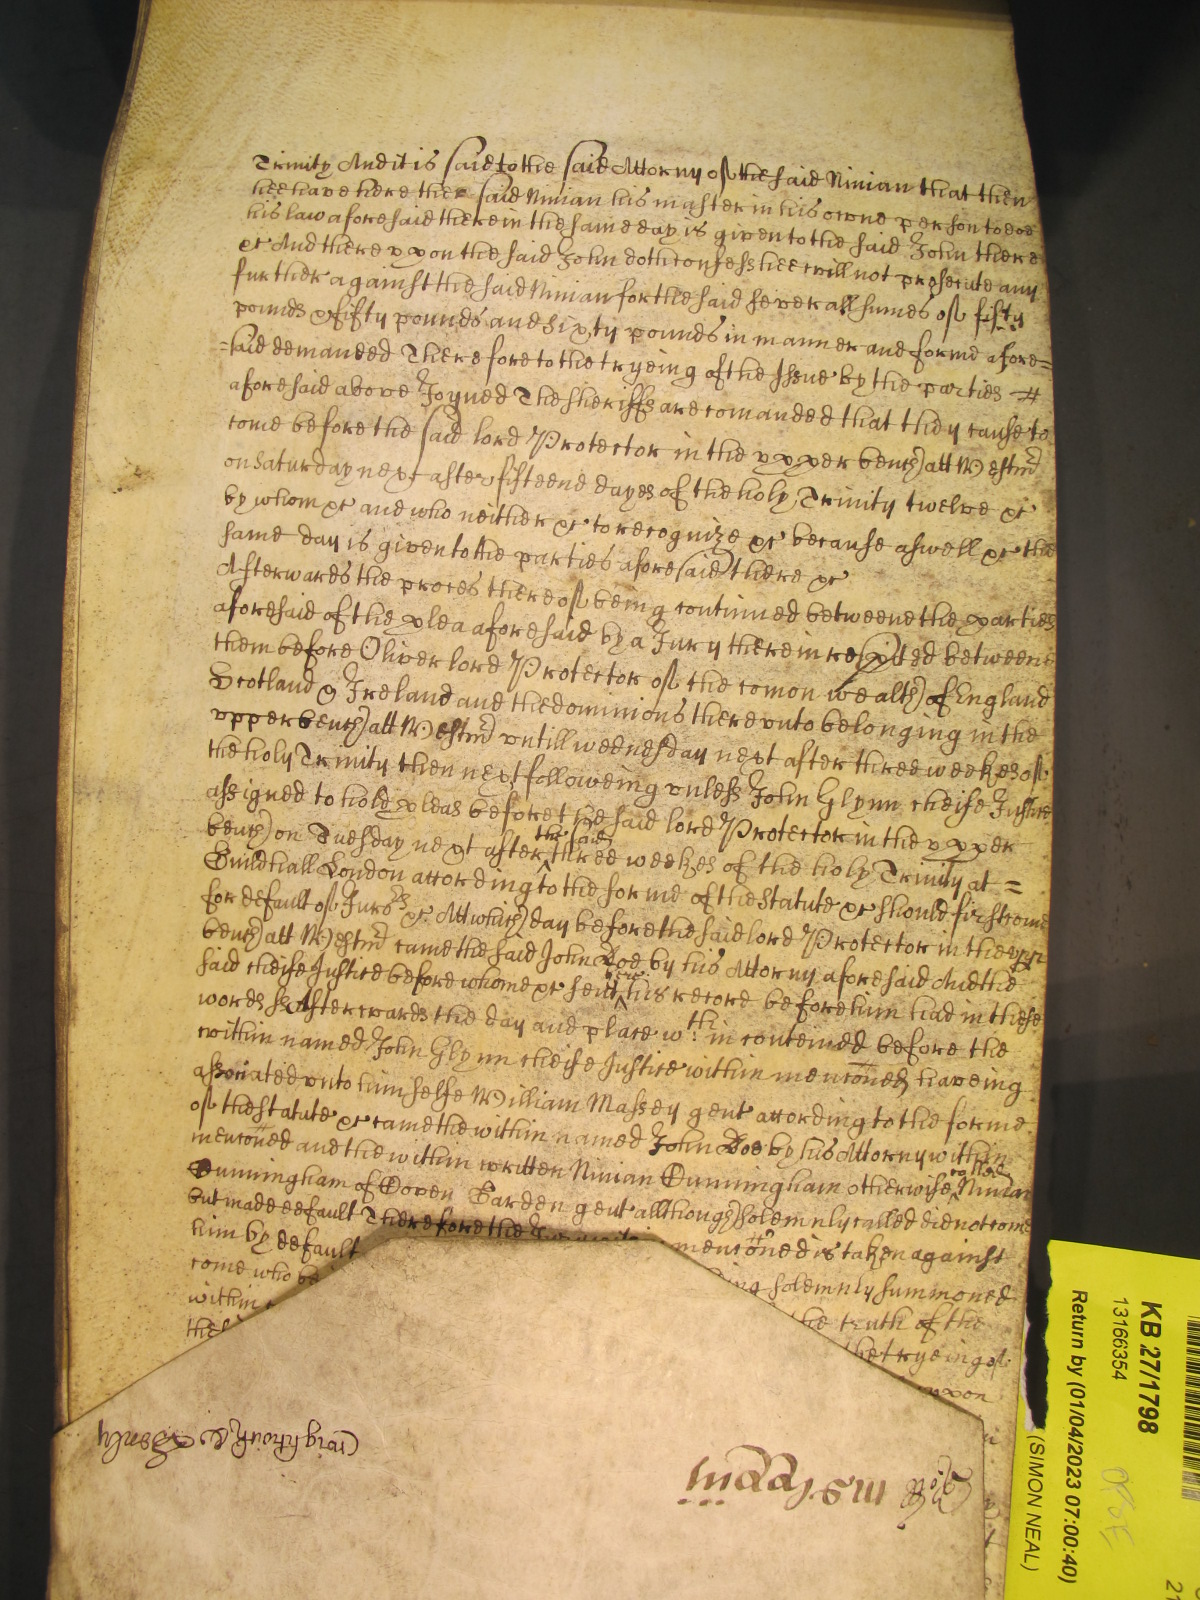 Trinity And it is said to the said Attorny of the said Ninian that then
hee have here the said Ninian his master in his owne person to doe
his law aforesaid therein the same day is given to the said John there
&c And thereuppon the said John doth confess hee will not prosecute any
further against the said Ninian for the said severall sumes of fifty
pounds & fifty pounds and sixty pounds in manner and forme afore=
=said demanded Therefore to the tryeing of the Issue by the parties
aforesaid above Joyned The sheriffs are comanded that they cause to
come before the said lord Protector in the upper bench att Westmr
on Saturday next after fifteene dayes of the holy Trinity twelve &c
by whom &c and who neither &c to recognize &c because aswell &c the
same day is given to the parties aforesaid there &c
Afterwards the proces thereof being continued betweene the parties
aforesaid of the plea aforesaid by a Jury therein respited betweene
them before Oliver lord Protector of the comon wealth of England
Scotland & Ireland and the dominions thereunto belonging in the
upper bench att Westmr untill wednesday next after three weekes of
the holy Trinity then next followeing unless John Glynn cheife Justice
assigned to hold pleas before the said lord Protector in the upper
bench on Tuesday next after the said three weekes of the holy Trinity at =
Guildhall London according to the forme of the statute &c should first come
for default of Jurors &c Att which day before the said lord Protector in the upper
bench att Westmr came the said John Doe by his Attorny aforesaid And the
said cheife Justice before whome &c sent here his record before him had in these
words Afterwards the day and place wthin conteined before the
within named John Glynn cheife Justice within menconed haveing
associated unto himselfe William Massey gent according to the forme
of the statute &c came the within named John Doe by his Attorny within
menconed and the within written Ninian Cunningham otherwise called Ninian
Cunningham of Coven Garden gent allthough solemnly called did not come
but made default Therefore the menconed is taken against
him by default solemnly summoned
come who be the truth of the
within the tryeing of
upon
Return by (01/04/2023 07:00:40)
(SIMON NEAL)
13166354
KB 27/1798